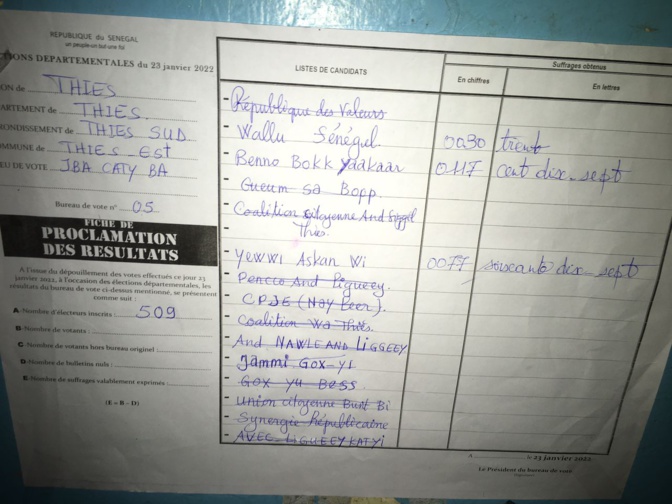 REPUBLIQUE du SENEGAL
un peuple-un but-une foi
TIONS DEPARTEMENTALES du 23 janvier 2022
ON de THIES
ARTEMENT de THIES
RONDISSEMENT de THIES SUD
OMMUNE de THIES EST
EU DE VOTE JBA CATY BA
Bureau de vote n° 05
FICHE DE
PROCLAMATION
DES RESULTATS
A l'issue du dépouillement des votes effectués ce jour 23
janvier 2022, à l'occasion des élections départementales, les
résultats du bureau de vote ci-dessus mentionné, se présentent
comme suit :
A-Nombre d'électeurs inscrits : 509
B-Nombre de votants :
C-Nombre de votants hors bureau originel :
D-Nombre de bulletins nuls :
E-Nombre de suffrages valablement exprimés :
(E = B - D)
LISTES DE CANDIDATS
Suffrages obtenus
En chiffres
En lettres
- République des Valeurs
- Wallu Sénégal 0030 trente
- Benno Bokk Yaakaar 0117 cent dix-sept
- Gueum sa Bopp
- Coalition citoyenne And
- Thies.
- Yewwi Askan Wi 0077 soixante dix-sept
- Pencco And Ligueey.
- CPJE (Nay Leer).
- Coalition Wa Thiès.
- And NAWLE AND LIGGEEY
- Jammi GOX-YI
- GOX YU BESS
- Union citoyenne Bunt Bi
- Synergie Républicaine
- AVEC LIGUEEY KAT YI
A le 23 janvier 2022.
Le Président du bureau de vote